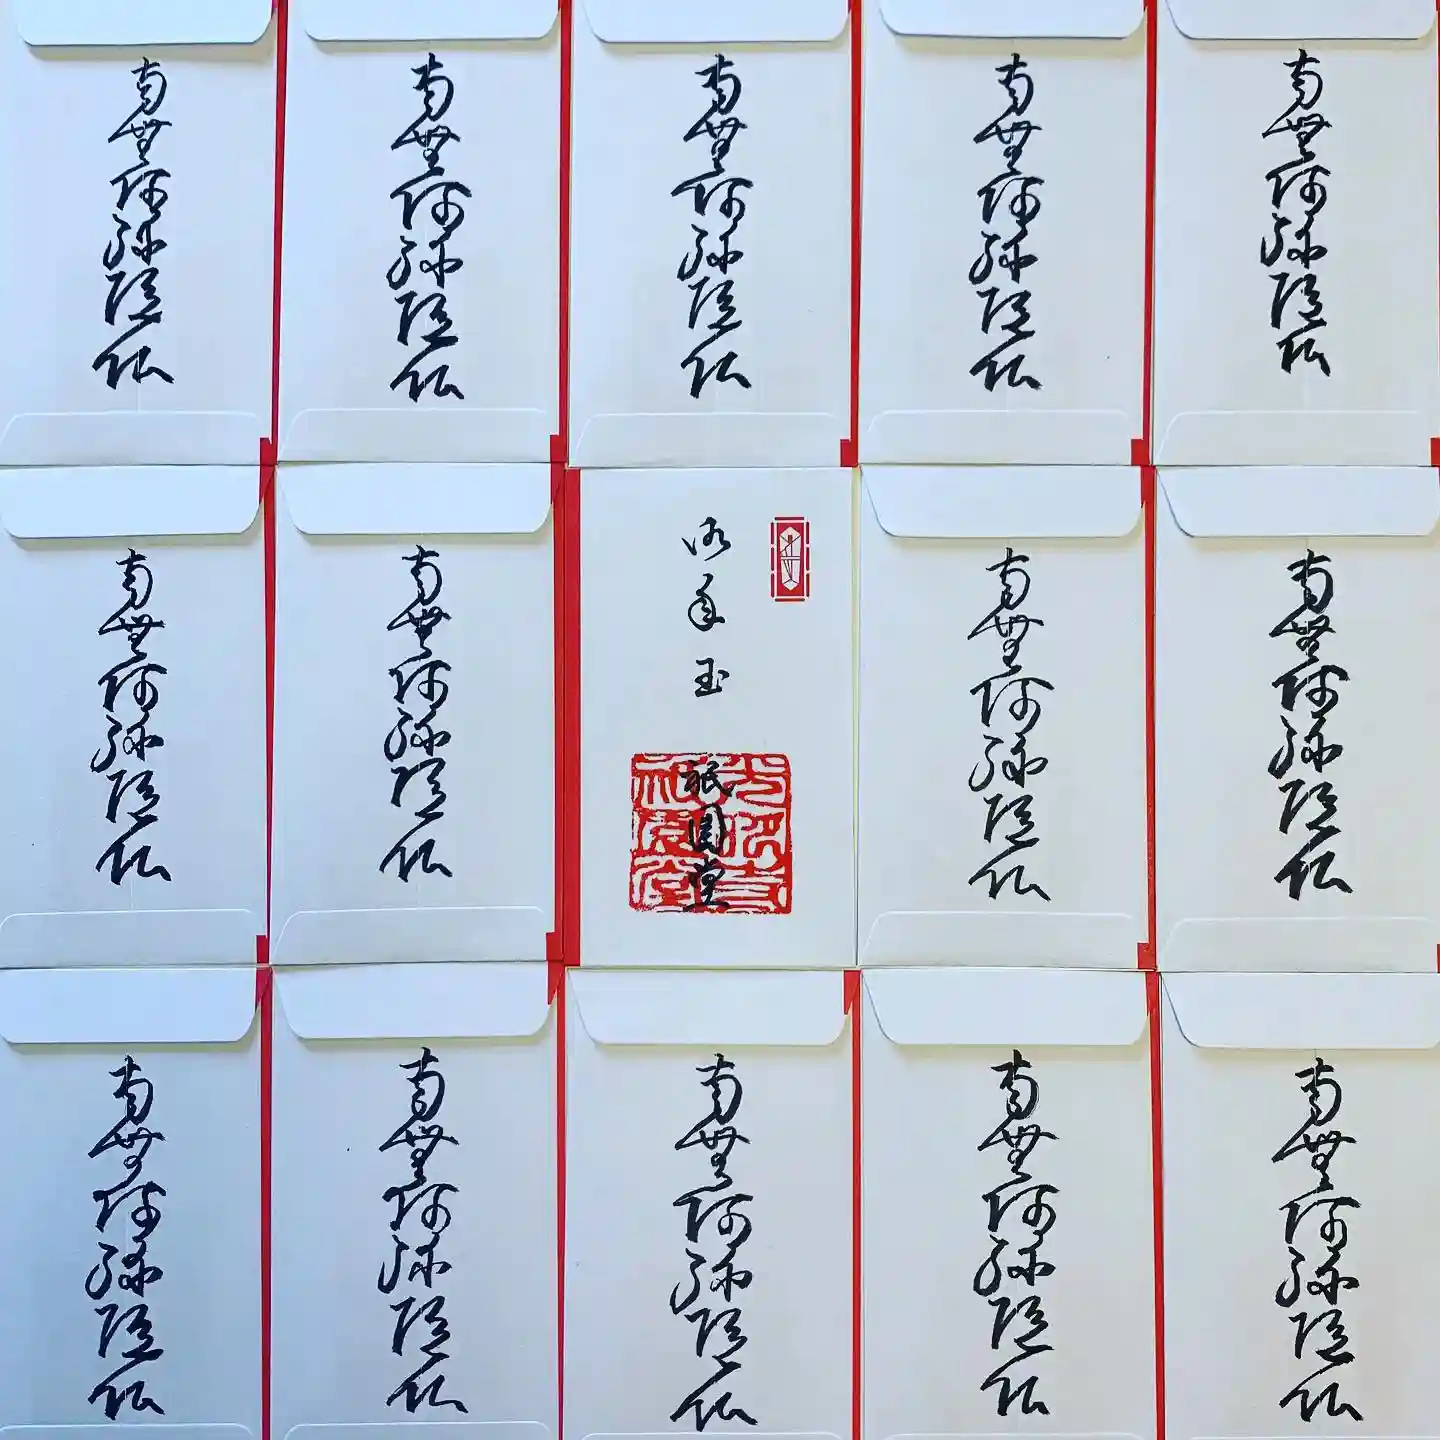 南無阿弥陀仏
南無阿弥陀仏
南無阿弥陀仏
南無阿弥陀仏
南無阿弥陀仏
南無阿弥陀仏
南無阿弥陀仏
御年玉
祇園堂
光明寺
祇園堂
南無阿弥陀仏
南無阿弥陀仏
南無阿弥陀仏
南無阿弥陀仏
南無阿弥陀仏
南無阿弥陀仏
南無阿弥陀仏